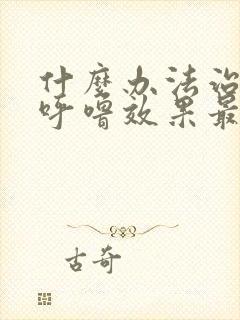 什麼办法治
呼噜效果最
古奇